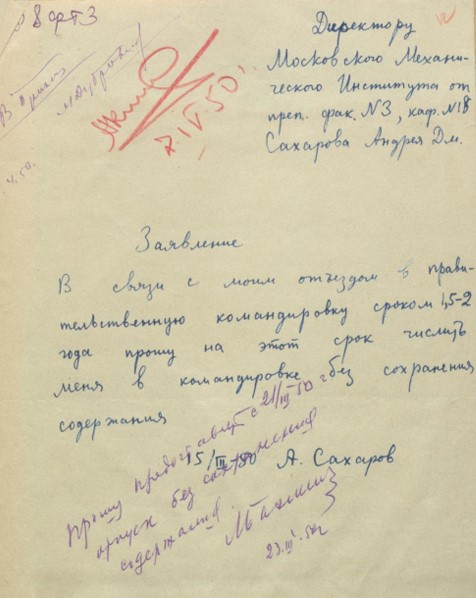 8 ФТ3
Директору
Московского Механи-
ческого Института от
преп. фак. N3, каф. N18
Сахарова Андрея Дм.
В приказ
7.IV 50г.
4.50.
Заявление
В связи с моим отъездом в прави-
тельственную командировку сроком 1,5-2
года прошу на этот срок числить
меня в командировке без сохранения
содержания
15/III-50 А. Сахаров
Прошу предоставить с 21/III-50 г
отпуск без сохранения
содержания.
23.III.50г